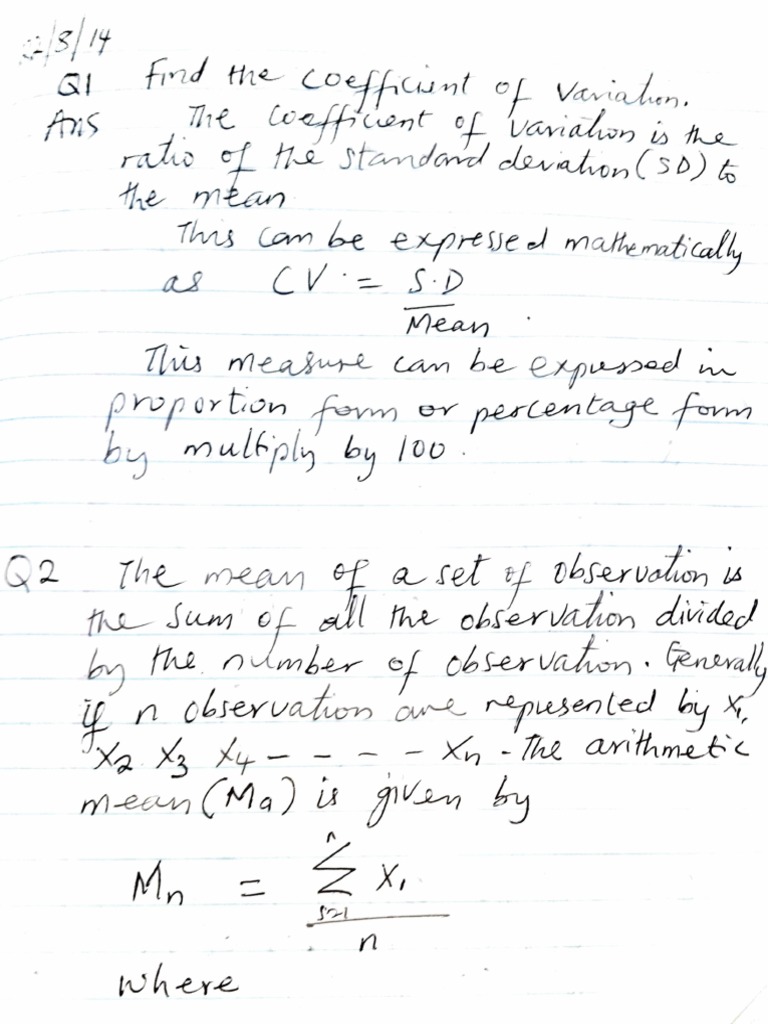 /3/14
Q1 Find the coefficient of variation.
Ans The coefficient of variation is the
ratio of the standard deviation (SD) to
the mean
This can be expressed mathematically
as CV = S.D
Mean
This measure can be expressed in
proportion form or percentage form
by multiply by 100.
Q2 The mean of a set of observation is
the sum of all the observation divided
by the number of observation. Generally
if n observation are represented by x1,
x2 x3 x4 - - - - xn - The arithmetic
mean (Ma) is given by
n
Mn = Σ x1
n
where